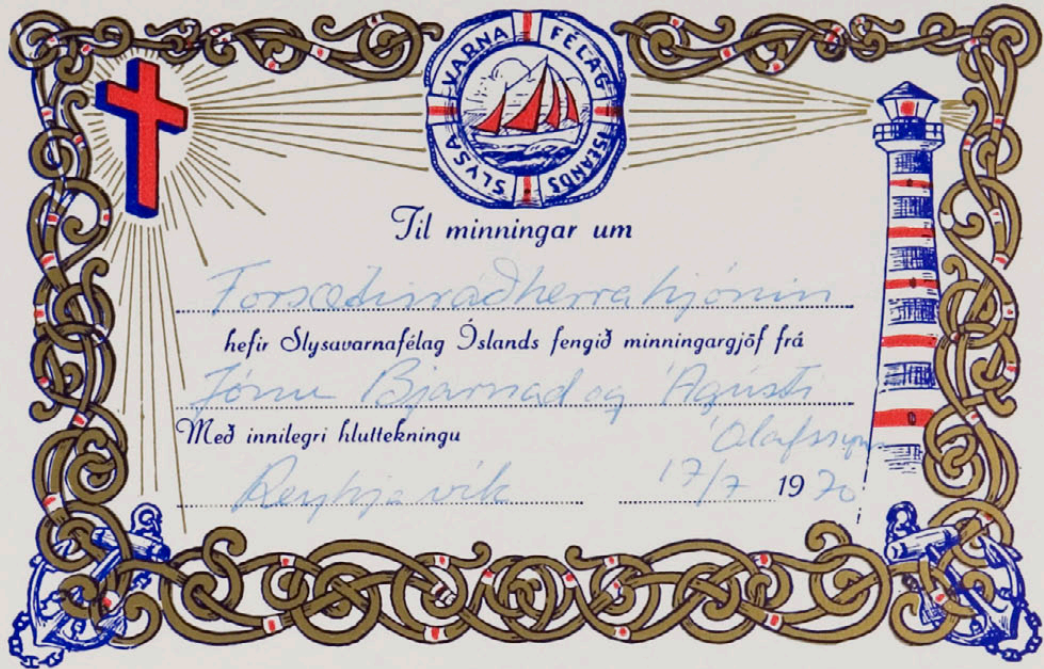 SLYSAVARNAFÉLAG ÍSLANDS
Til minningar um
Forsætisráðherrahjónin
hefir Slysavarnafélag Íslands fengið minningargjöf frá
Jónu Bjarnad og Ágústi
Ólafssyni
Með innilegri hluttekningu
Reykjavík 17/7 1970